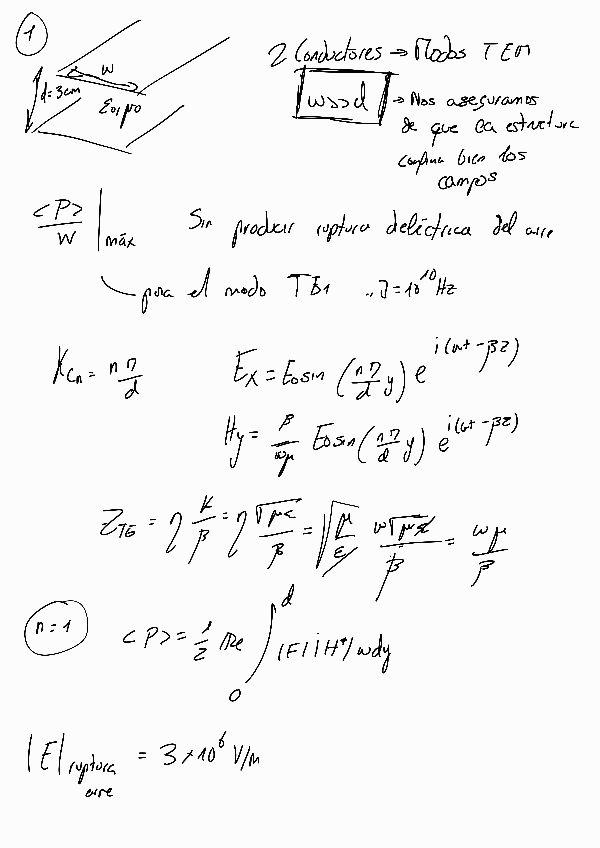 1
W
d=3cm
ε₀, μ₀
2 Conductores → Modos TEM
W>>d → Nos aseguramos
de que la estructura
confina bien los
campos
<P>/W |máx Sin producir ruptura dieléctrica del aire
para el modo TE1 f=10^10 Hz
Kcn = nπ/d Ex = E0 sin (nπ/d y) e^i(ωt-βz)
Hy = β/ωμ E0 sin (nπ/d y) e^i(ωt-βz)
ZTE = η K/β = η √με/β = √μ/ε ω√με/β = ωμ/β
n=1 <P> = 1/2 Re ∫₀^d |E| |H*| w dy
|E| ruptura aire = 3×10^6 V/m